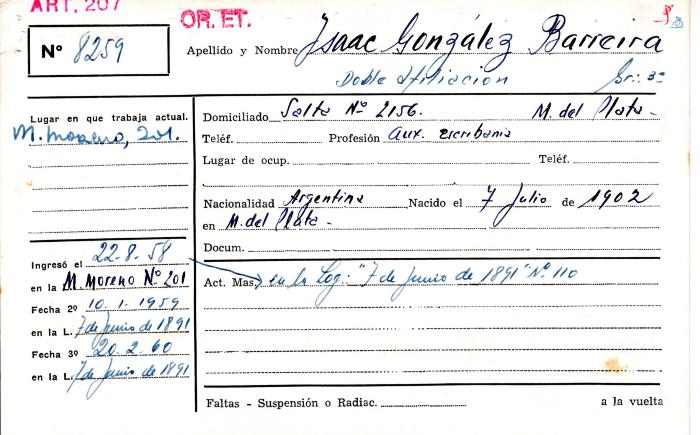 ART. 207
OR. ET.
Nº 8259
Apellido y Nombre Isaac González Barreira
Doble Afiliación Gr: 3º
Lugar en que trabaja actual.
M. Moreno, 201.
Domiciliado Salta Nº 2156. M. del Plata -
Teléf. Profesión Aux. escribanía
Lugar de ocup. Teléf.
Nacionalidad Argentina Nacido el 7 Julio de 1902
en M. del Plata -
Docum.
Ingresó el 22-8-58
en la M. Moreno Nº 201
Fecha 2º 10.1.1959
en la L. 7 de Junio de 1891
Fecha 3º 20.2.60
en la L. 7 de Junio de 1891
Act. Mas. en la Log: "7 de Junio de 1891" Nº 110
Faltas - Suspensión o Radiac. a la vuelta